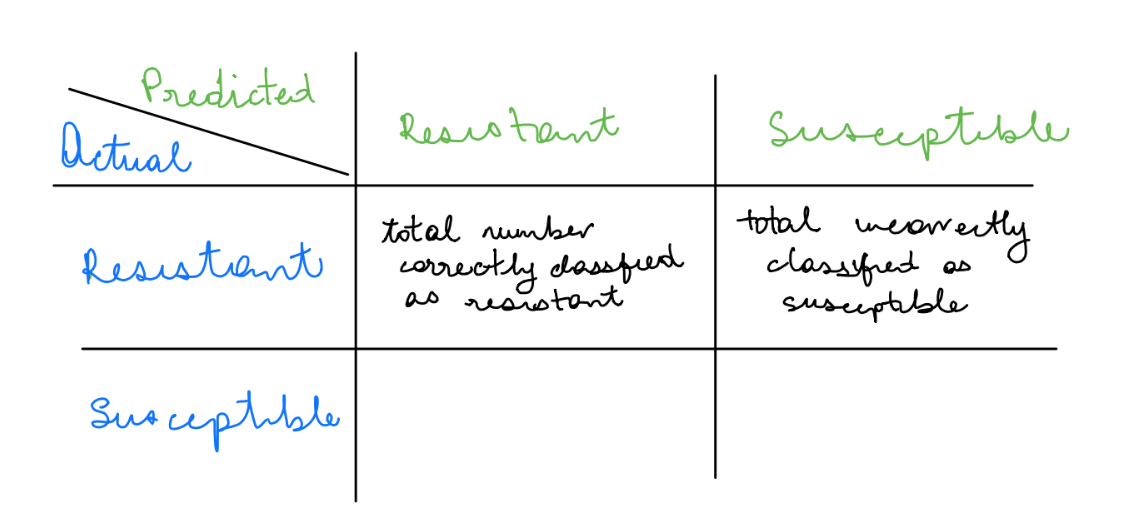 Predicted
Actual
Resistant
Susceptible
Resistant
total number
correctly classified
as resistant
total incorrectly
classified as
susceptible
Susceptible